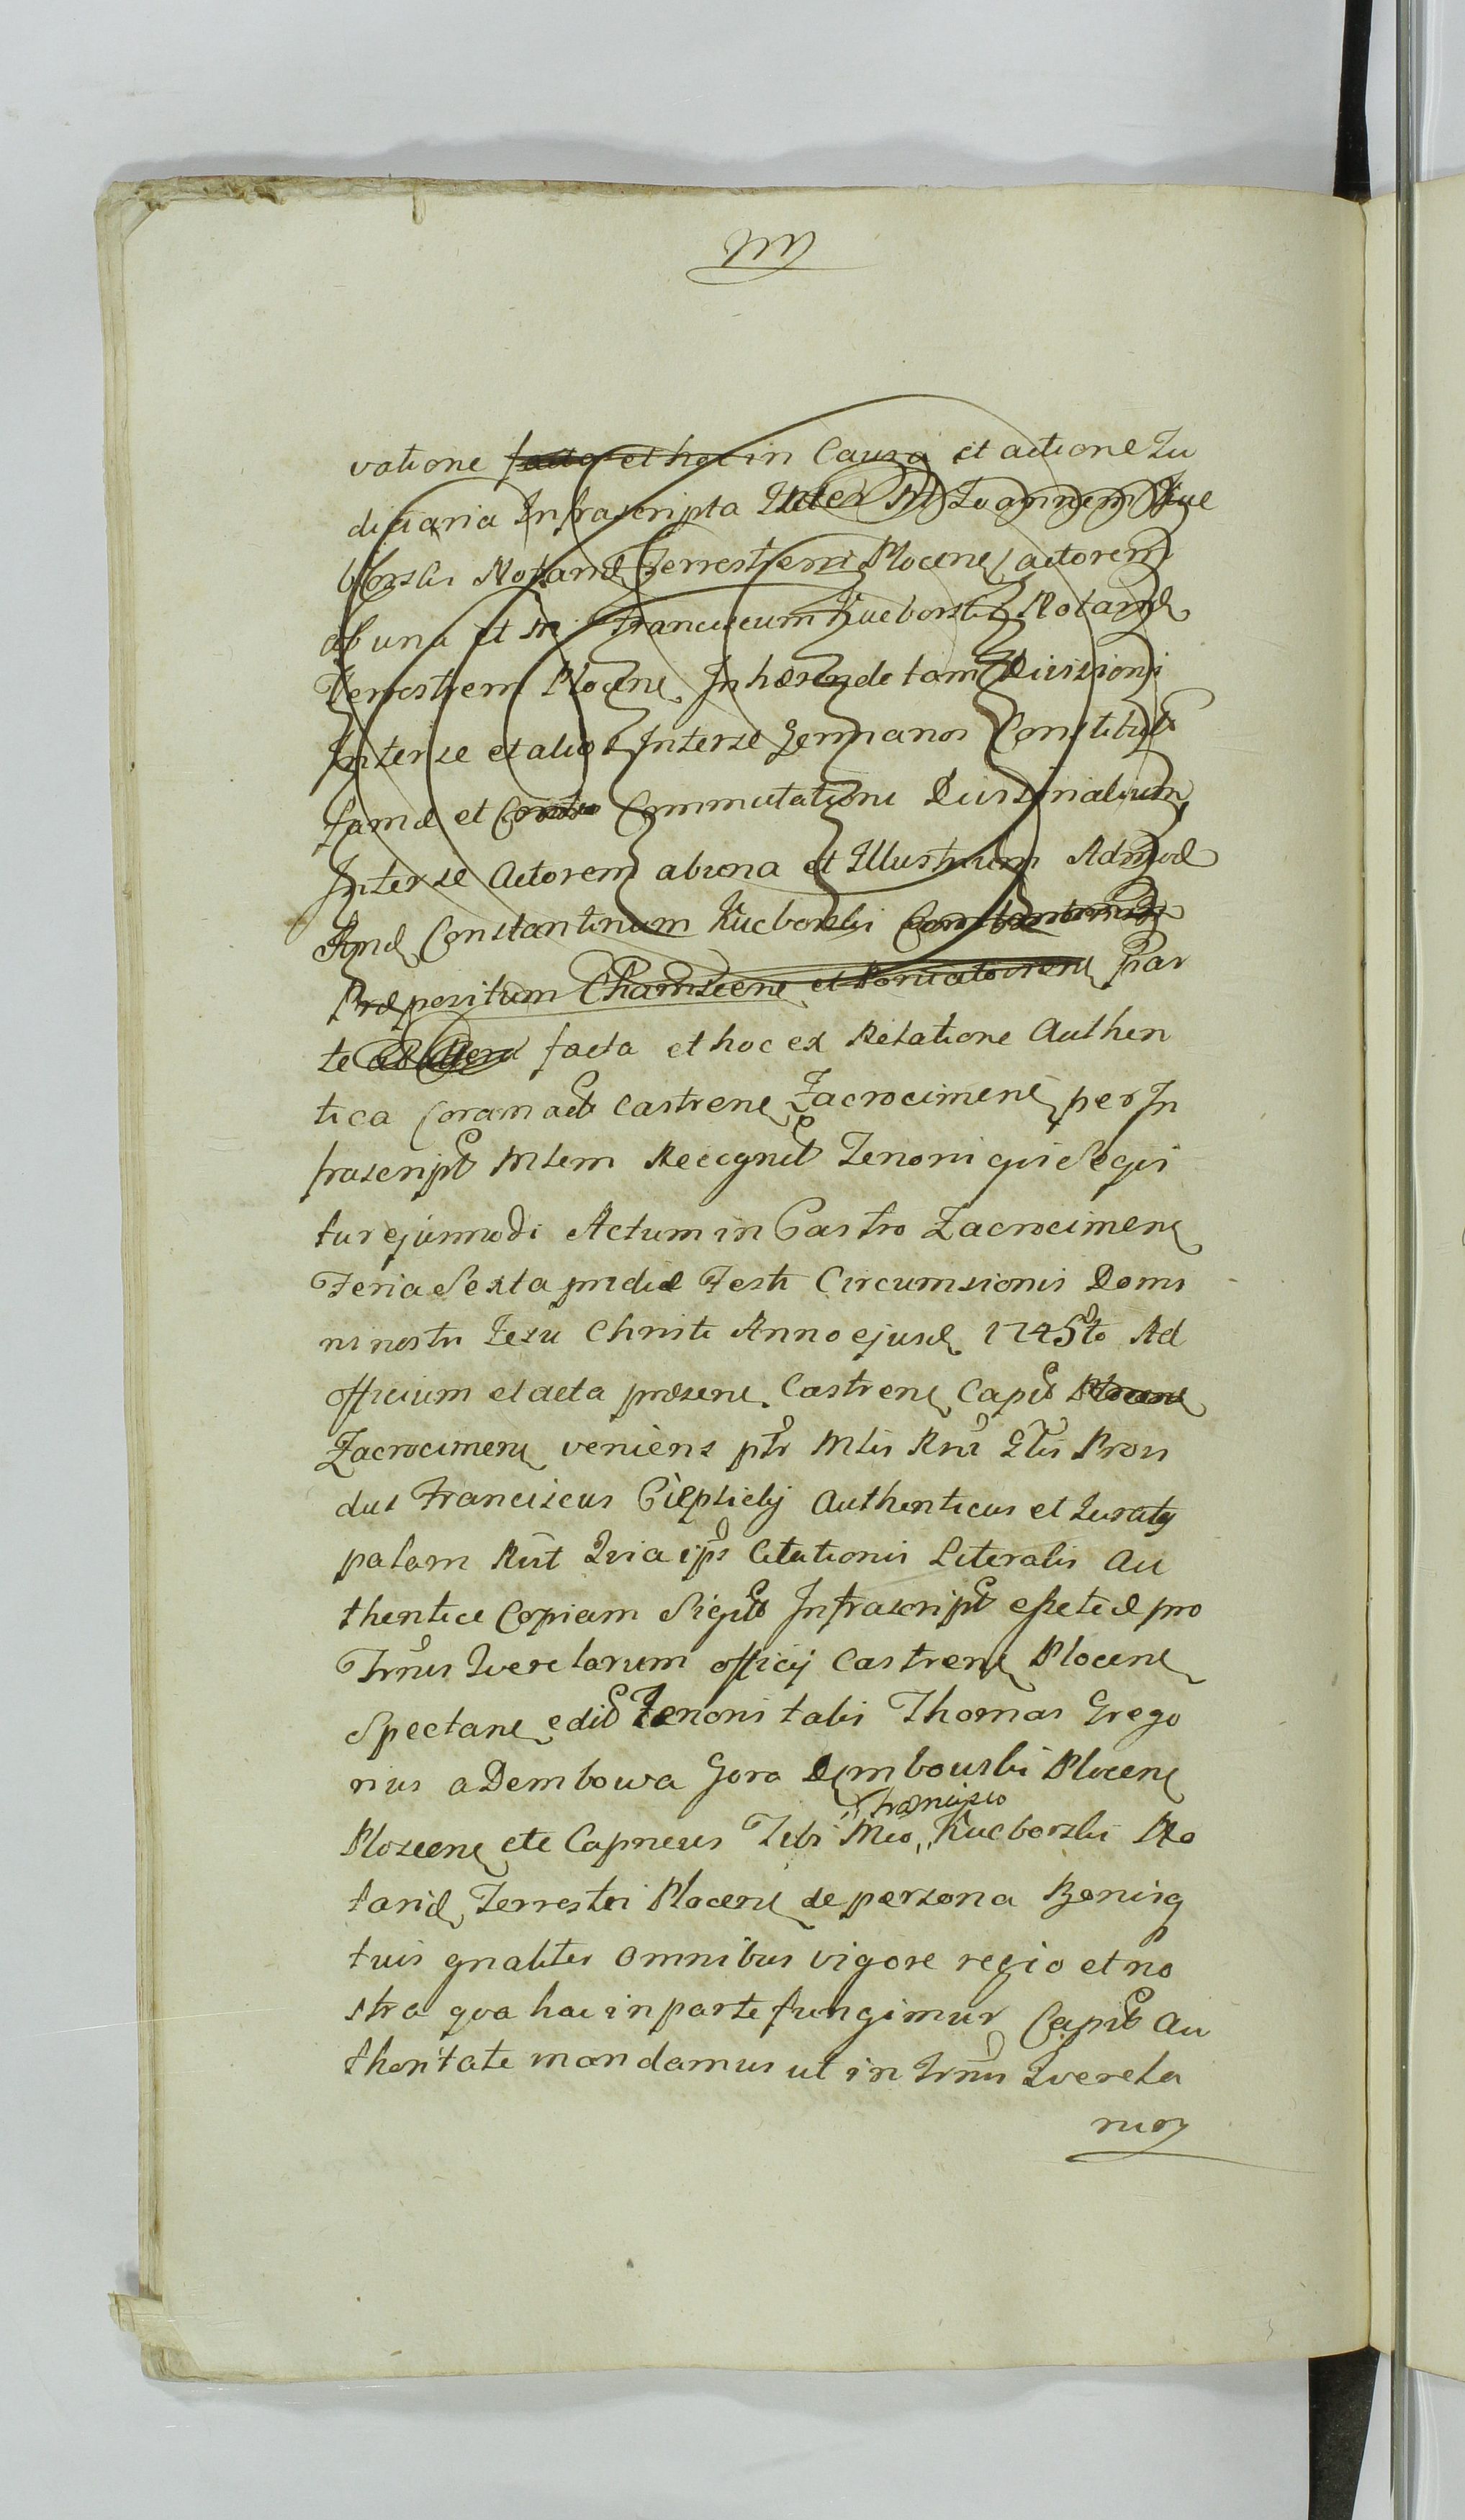 vatione facta et hoc in Causa et actione Ju
diciaria Infrascripta Inter M Joannem Kuc
borski Notariũ Terrestrem Plocenẽ actorem
ab una et M Franciscum Kucborski Notariũ
Terrestrem Plocenẽ Inhærende tam Divisioni
Inter se et alios Inter se Germanos Constitut
tamẽ et Commutationi Divisionalium
Inter se Actorem ab una et Illustrem Admod
Rnd Constantinum Kucborski
Præpositum et par
te ab altera facta et hoc ex Relatione Authen
tica Coram act Castrenẽ Zacrocimenẽ per In
frascript Mlem Recognit Tenoris qui Sequi
tur ejusmodi Actum in Castro Zacrocimenẽ
Feria Sexta pridie Festi Circumsionis Domi
ni nostri Jesu Christi Anno ejusd 1745to Ad
officium et acta præsenẽ Castrenẽ Capit Plocenẽ
Zacrocimenẽ veniens ptr Mlis Rni Gtlis Provi
dus Franciscus Cieplicki Authenticus et Juratq
palam Rit Quia ips Citationis Literalis Au
thenticæ Copiam Sigill Infrascript pro
Trnis Querelarum officij Castrenẽ Plocenẽ
Spectanẽ edit Tenoris talis Thomas Grego
rius a Dembowa Gora Dembowski Plocenẽ
Francisco
Plocenẽ etc Capneus Tibi Mco Kucborski No
tariũ Terrestri Plocenẽ de persona Bonisq
tuis gnaliter omnibus vigore regio et no
stra qva hac in parte fungimur Capit Au
thoritate mandamus ut in Trnis Querela
rum